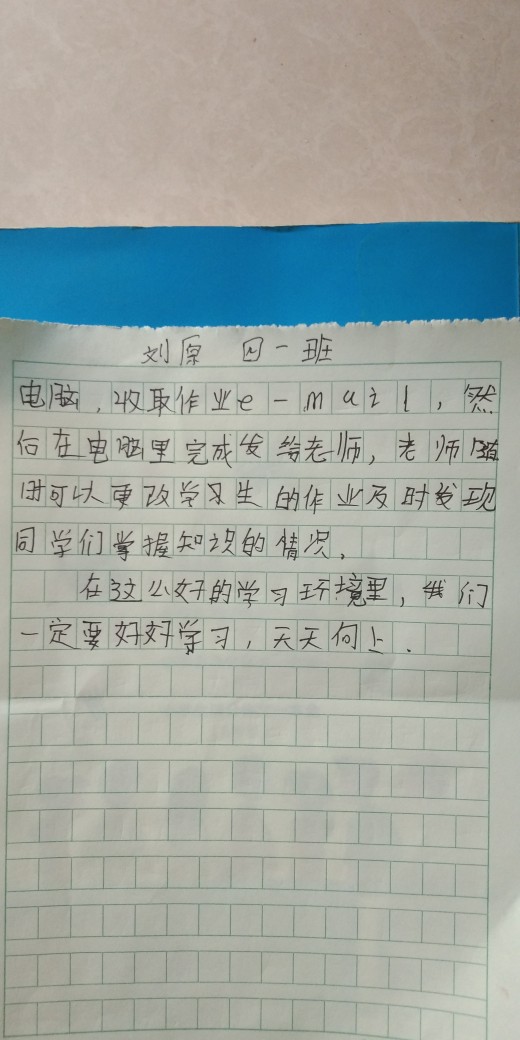 刘原 四一班
电脑，收取作业e-mail，然
后在电脑里完成发给老师，老师随
时可以更改学习生的作业及时发现
同学们掌握知识的情况．
在这么好的学习环境里，我们
一定要好好学习，天天向上．